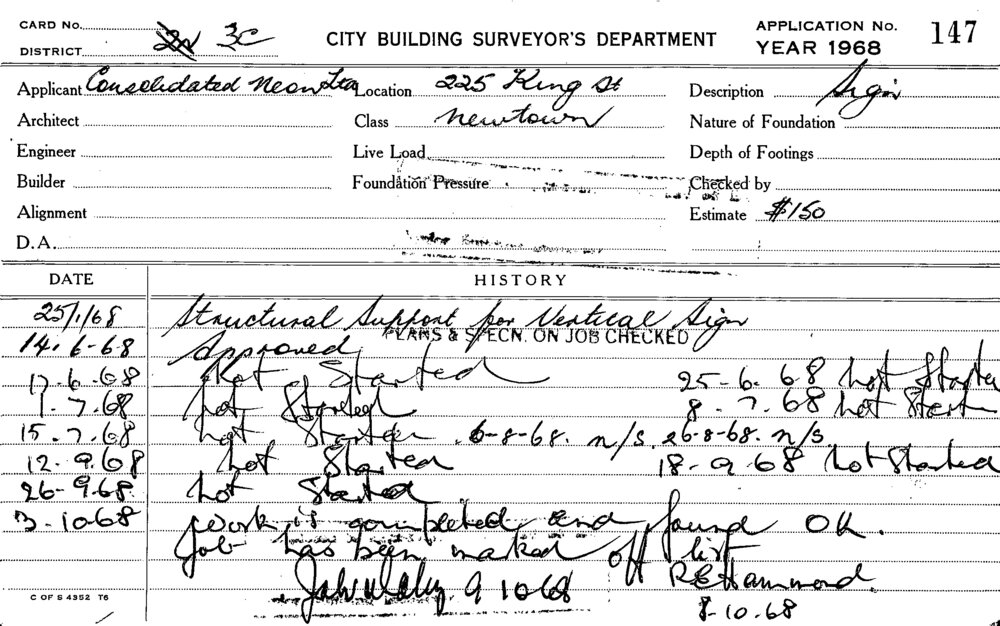 CARD No. CITY BUILDING SURVEYOR'S DEPARTMENT APPLICATION No. 147
DISTRICT 2N 3C YEAR 1968
Applicant Consolidated Neon Ltd Location 225 King St Description Sign
Architect Class Newtown Nature of Foundation
Engineer Live Load Depth of Footings
Builder Foundation Pressure Checked by
Alignment Estimate $150
D.A.
DATE HISTORY
25/1/68 Structural Support for Vertical Sign
PLANS & SPECN. ON JOB CHECKED
14.6-68 Approved
17.6.68 Not Started 25-6.68 Not Started
1.7.68 Not Started 8.7.68 Not Start
15.7.68 Not Started 6-8-68. n/s. 26-8-68. n/s.
12.9.68 Not Started 18-9-68 Not Started
26-9.68 Not Started
3-10-68 Work is completed and found OK.
Job has been marked off list
9 10 68 R E Hammond.
C OF S 4352 T6 8-10.68